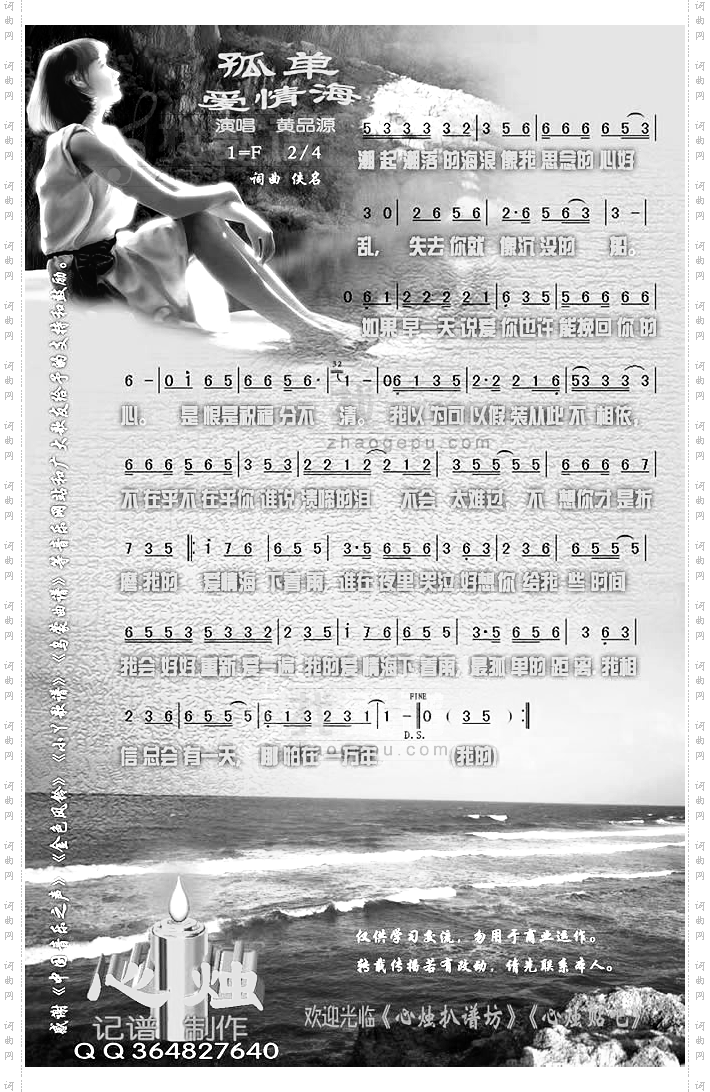 孤单
爱情海
演唱 黄品源
1=F 2/4
词曲 佚名
5 3 3 3 3 2|3 5 6|6 6 6 6 5 3|
潮起潮落的海浪 像我思念的心好
3 0| 2 6 5 6| 2·6 5 6 3|3 -|
乱， 失去你就 像沉没的 船。
0 6 1|2 2 2 2 1|6 3 5|5 6 6 6 6|
如果早一天说爱你也许能挽回你的
6 -|0 i 6 5|6 6 5 6·|32 1 -|0 6 1 3 5|2·2 2 1 6|5 3 3 3 3|
心。 是恨是祝福分不 清。 我以为可以假装从此不相依，
6 6 6 5 6 5|3 5 3|2 2 1 2 2 1 2|3 5 5 5 5|6 6 6 6 7|
不在乎不在乎你谁说溃啼的泪 不会 太难过， 不 想你才是折
7 3 5‖: i 7 6|6 5 5|3·5 6 5 6|3 6 3|2 3 6|6 5 5 5|
磨我的 爱情海下着雨，谁在夜里哭泣好想你给我些时间
6 5 5 3 5 3 3 2|2 3 5|i 7 6|6 5 5|3·5 6 5 6|3 6 3|
我会好好重新爱一遍 我的爱情海下着雨，最孤单的距离 我相
2 3 6|6 5 5 5|6 1 3 2 3 1|1 -‖0 ( 3 5 ) :‖
FINE
D.S.
信总会有一天， 哪怕在一万年 (我的)
zhaogepu.com
zhaogepu.com
感谢《中国音乐之声》《金色风铃》《小丫歌谱》《乌蒙曲谱》等音乐网站和广大朋友给予的支持和鼓励。
仅供学习交流，勿用于商业运作。
转载传播若有改动，请先联系本人。
心烛
记谱 制作
QQ364827640
欢迎光临《心烛扒谱坊》《心烛贴吧》